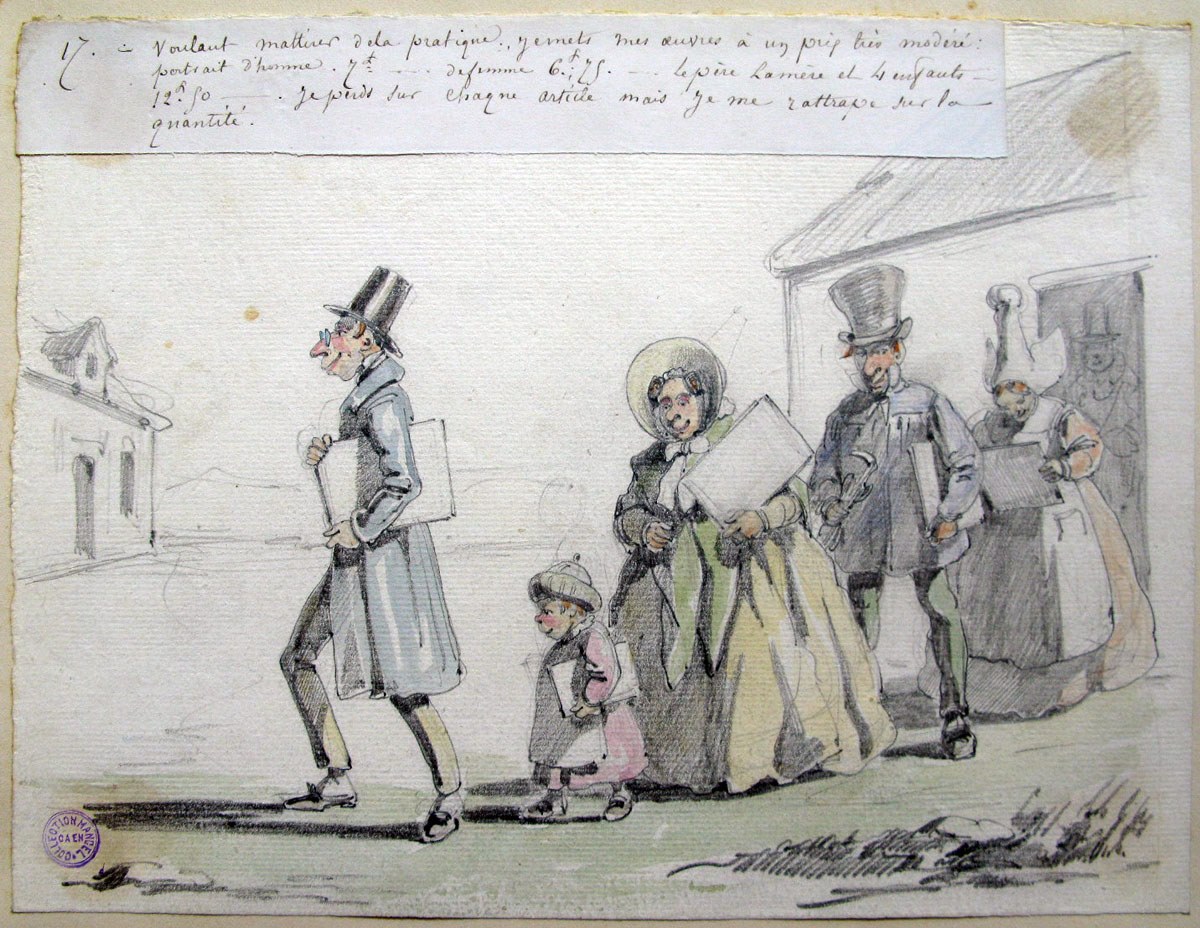 17. - Voulant m'attirer de la pratique., je mets mes œuvres à un prix très modéré:
portrait d'homme. 7f ---- de femme 6.f,75. --- Le père La mère et 4 enfants -
12.f 50 ---- Je perds sur chaque article mais Je me rattrape sur la
quantité.
COLLECTION MANCEL
CAEN